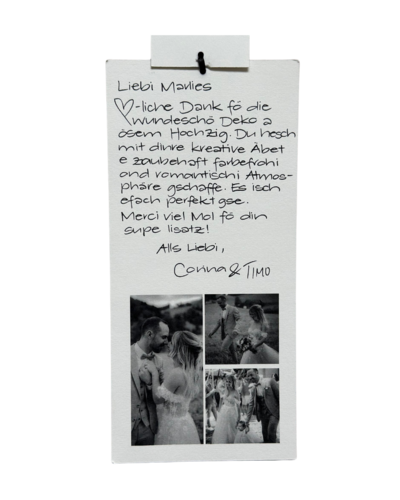 Liebi Marlies
♡-liche Dank fö die
wundeschö Deko a
ösem Hochzig. Du hesch
mit dinre kreative Äbet
e zaubehaft farbefrohi
ond romantischi Atmos-
phäre gschaffe. Es isch
efach perfekt gse.
Merci viel Mol fö din
supe Iisatz!
Alls Liebi,
Corina & TIMO